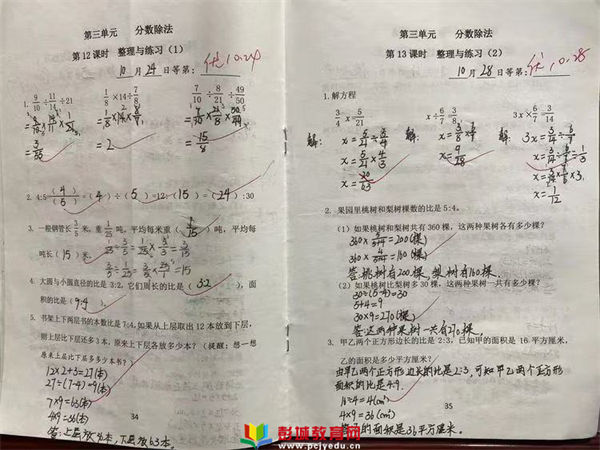 第三单元 分数除法
第12课时 整理与练习（1）
10月24日等第：优 10.24
1. 9/10÷11/14÷21
1/8×14÷7/8
7/10÷8/21÷49/50
=2
=15/8
2. 4:5=(4)/(5)=(4)÷(5)=12÷(15)=(24):30
3. 一根钢管长3/5米，重1/25吨，平均每米重(1/15)吨，平均每
吨长(15)米。
4. 大圆与小圆直径的比是3:2，它们周长的比是(3:2)，面
积的比是(9:4)。
5. 书架上下两层书的本数比是7:4，如果从上层取出12本放到下层，
则上层比下层还多3本，原来上层下层各放多少本？（提醒：想一想
原来上层比下层多多少本书？）
12×2+3=27(本)
27÷(7-4)=9(本)
7×9=63(本)
4×9=36(本)
34
第三单元 分数除法
第13课时 整理与练习（2）
10月28日等第：优 10.28
1.解方程
3/4x=5/21
x÷6/7=3/8
3x×6/7=3/14
解：x=5/21÷3/4
x=5/21×4/3
x=20/63
解：x=3/8×6/7
x=9/28
2. 果园里桃树和梨树棵数的比是5:4。
（1）如果桃树和梨树共有360棵，这两种果树各有多少棵？
360×5/5+4=200(棵)
360×4/5+4=160(棵)
答：桃树有200棵，梨树有160棵。
（2）如果桃树比梨树多30棵，这两种果树一共有多少棵？
30÷(5-4)=30
5+4=9
30×9=270(棵)
答：这两种果树一共有270棵。
3. 甲乙两个正方形边长的比是2:3，已知甲的面积是16平方厘米，
乙的面积是多少平方厘米？
由甲乙两个正方形边长的比是2:3，可知甲乙两个正方形
面积的比是4:9.
16÷4=4(cm²)
4×9=36(cm²)
的面积是36平方厘米.
35
彭城教育网
www.pcjyedu.cn